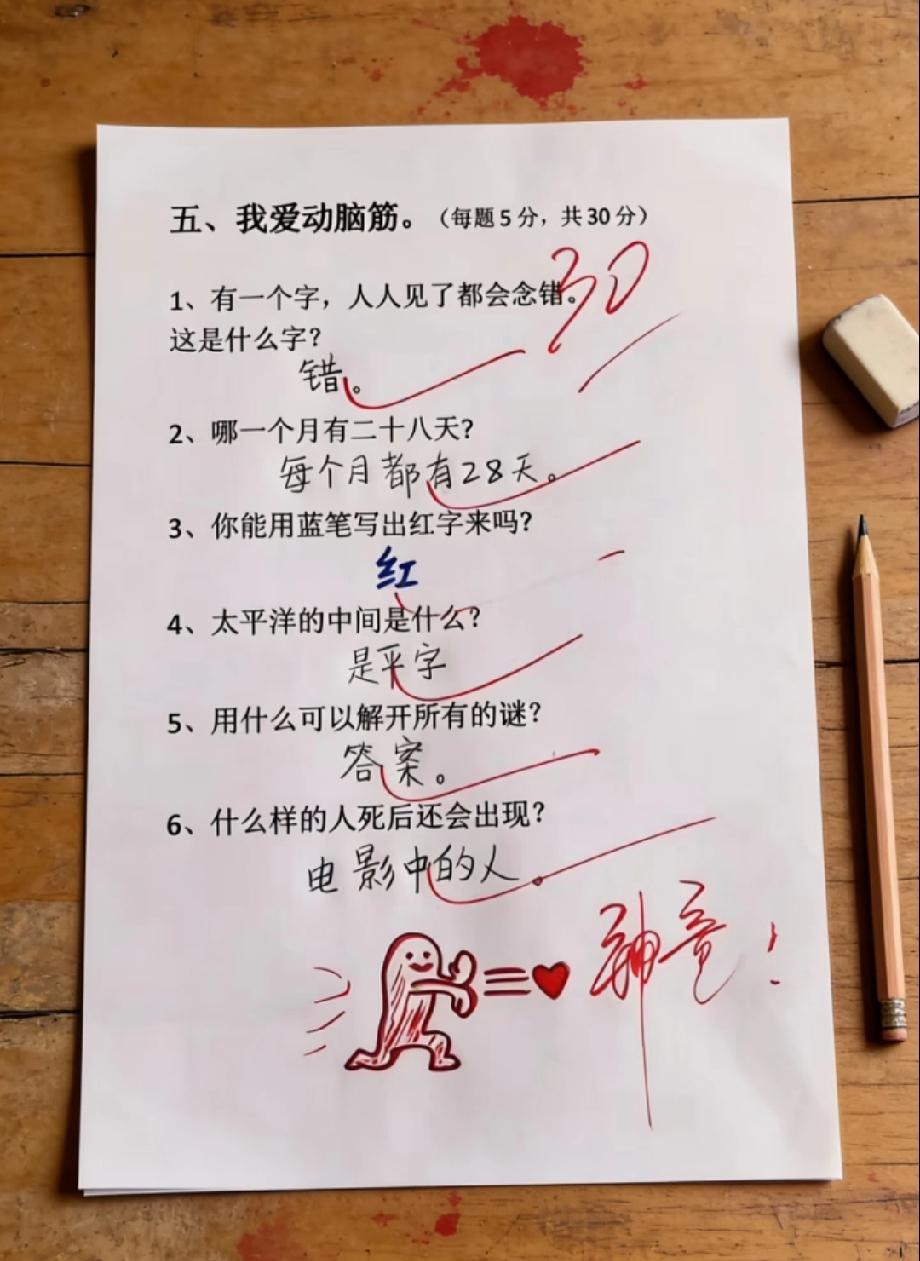 五、我爱动脑筋。（每题5分，共30分）
30
1、有一个字，人人见了都会念错。
这是什么字？
错。
2、哪一个月有二十八天？
每个月都有28天。
3、你能用蓝笔写出红字来吗？
红
4、太平洋的中间是什么？
是平字
5、用什么可以解开所有的谜？
答案。
6、什么样的人死后还会出现？
电影中的人。
神童！